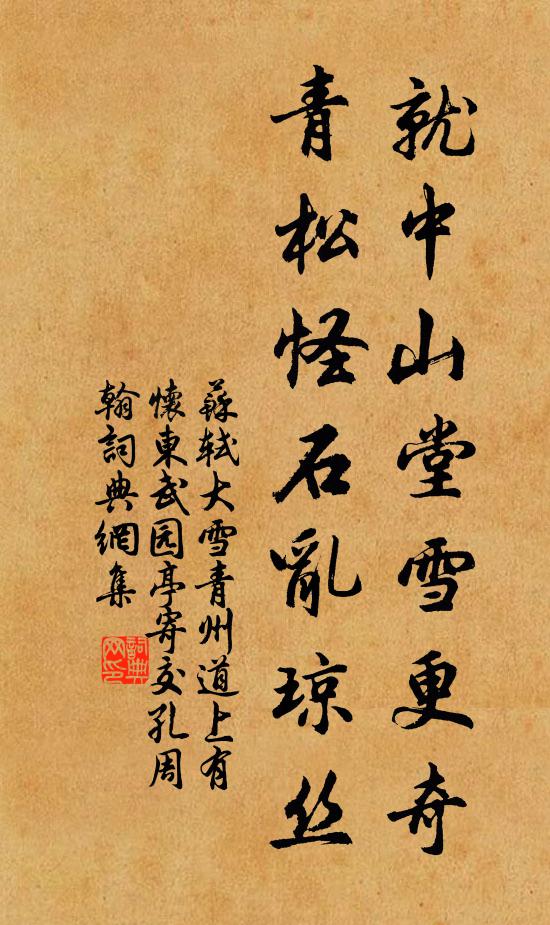 就中山堂雪更奇
青松怪石亂琼丝
蘇軾大雪青州道上有
懷東武园亭寄交孔周
翰詞典網集
詞典
网印